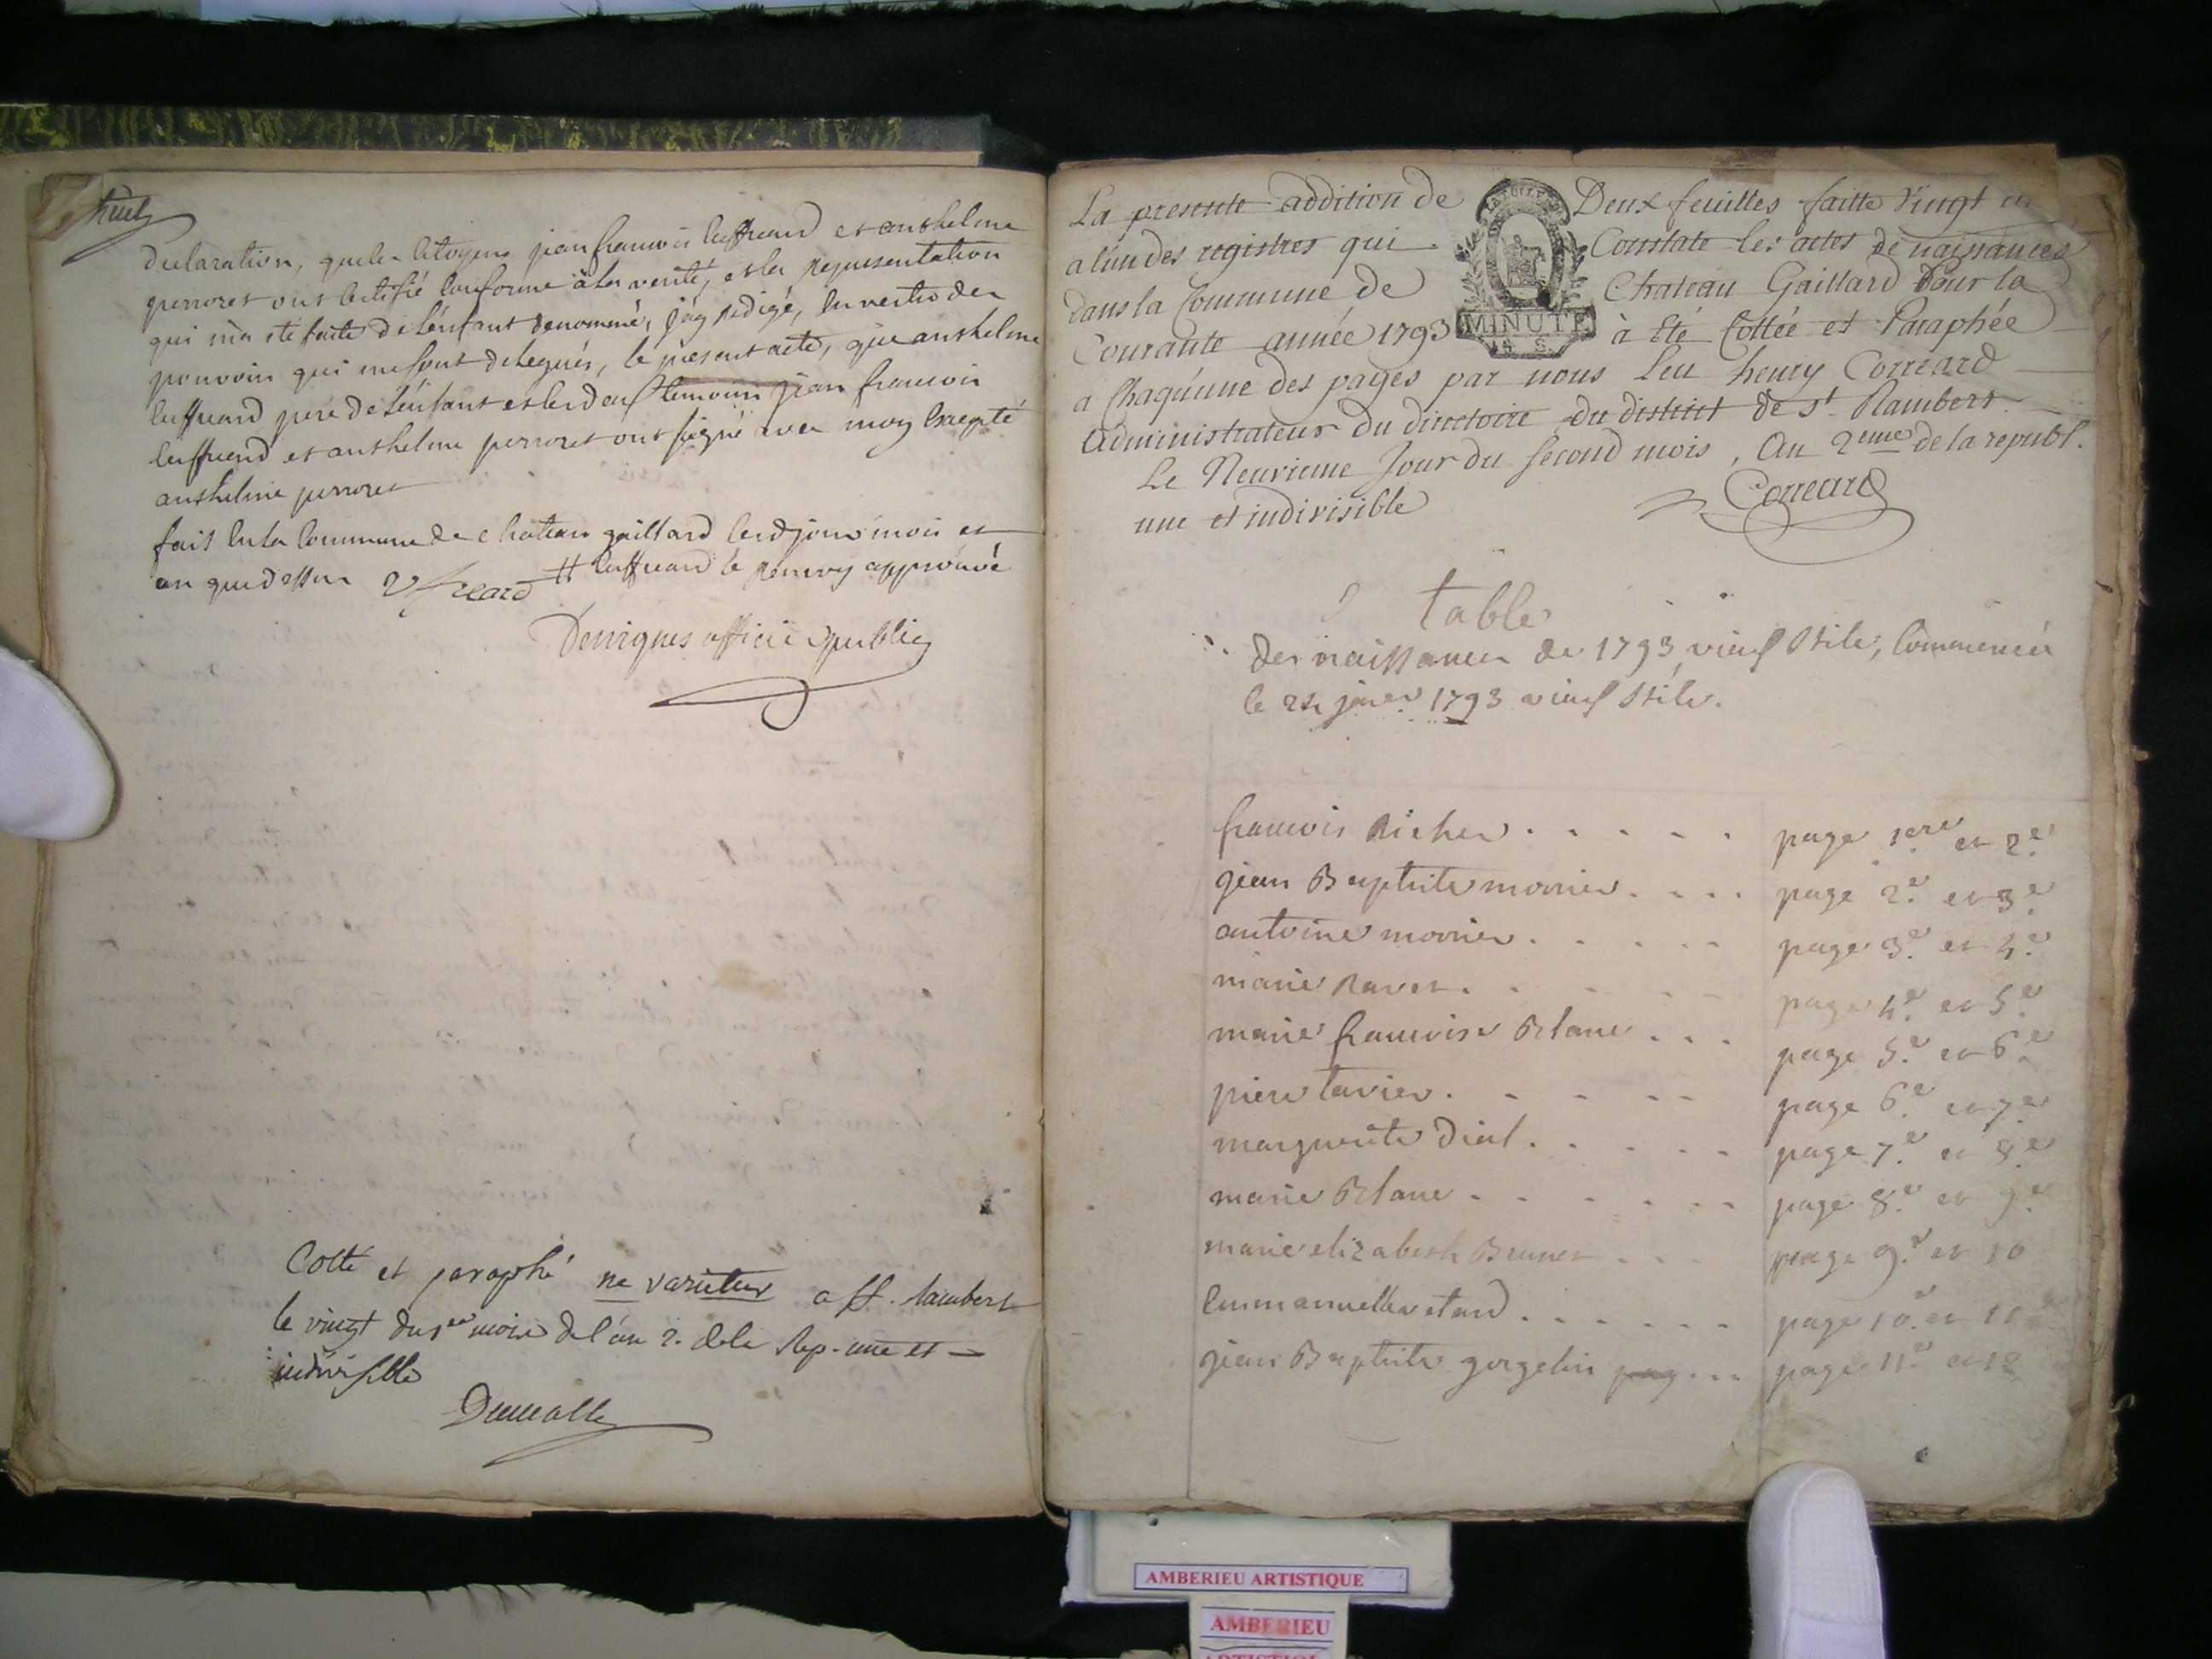 huit
declaration, que les citoyens jean francois luffreard et anthelme
perroset ont certifié conforme à la verité, et la representation
qui m'a été faite de l'enfant denommé, j'ay redigé, en vertu des
pouvoirs qui me sont delegués, le present acte, que anthelme
luffreard pere de l'enfant et les deux temoins jean francois
luffreard et anthelme perroset ont signé avec moy excepté
anthelme perroset
fait en la commune de chateau gaillard lesd jour mois et
an que dessus # luffreard le renvoy approuvé
officié public
Cotté et paraphé ne varietur a St. Rambert
le vingt du 1er mois de l'an 2. de la Rep. une et
indivisible
La presente addition de Deux feuilles faitte Vingt
a l'un des registres qui Constate les actes de naissances
dans la Commune de Chateau Gaillard Pour la
Courante année 1793 à Eté Cottée et Paraphée
MINUTE
4 S.
a Chaqu'une des pages par nous Leu henry Correard
Administrateur du directoire du district de st Rambert
Le Neuvieme Jour du second mois, An 2eme de la republ.
une et indivisible Correard
table
des naissances de 1793 vieux stile, Commencée
le 24 janer 1793 vieux stile.
francois Richer . . . . . page 1ere et 2e
jean Baptiste monier . . . . page 2e et 3e
antoine monier . . . . . page 3e et 4e
marie Ravet . . . . . page 4e et 5e
marie francoise Blanc . . . page 5e et 6e
piere tavier . . . . . page 6e et 7e
marguerite Dial . . . . . page 7e et 8e
marie Blanc . . . . . . page 8e et 9e
marie elizabeth Brunet . . . page 9e et 10
Emmanuelle etard . . . . . . page 10e et 11e
jean Baptiste gorgelin pag . . . page 11e et 12
AMBERIEU ARTISTIQUE
AMBERIEU
ARTISTIQUE